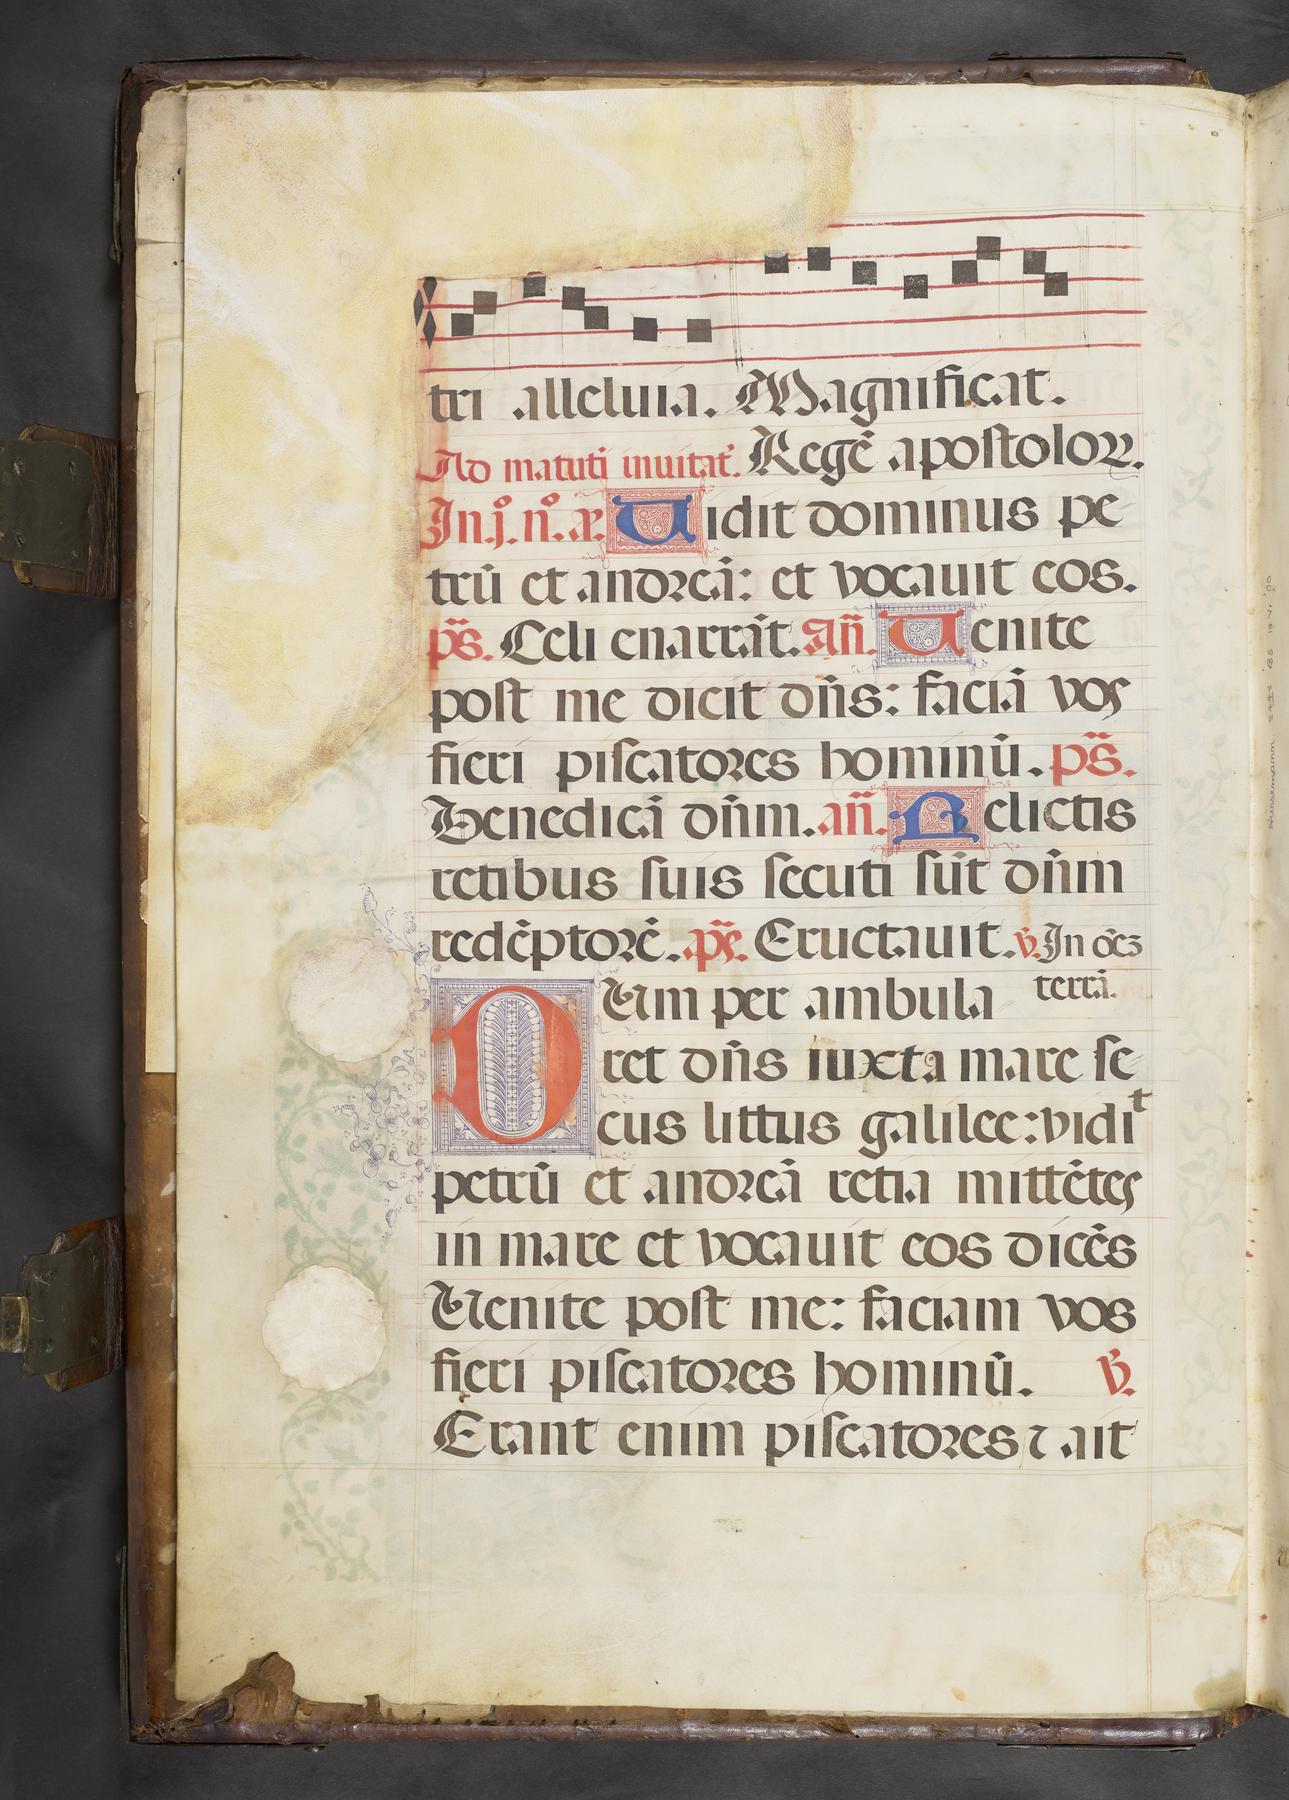 tri alleluia. Magnificat.
Ad matuti᷑ inuitat᷑. Regē apostoloꝝ.
In.j.º n.º a᷑. Uidit dominus pe
trū et andreā: et vocauit eos.
ps̄. Celi enarrāt. añ. Uenite
post me dicit dñs: faciā vos
fieri piscatores hominū. ps̄.
Benedicā dñm. añ. Relictis
retibus suis secuti sūt dñm
redēptorē. ps̄. Eructauit. v̄. In oēz
terrā.
DUm per ambula
ret dñs iuxta mare se
cus littus galilee: vidit
petrū et andreā retia mittētes
in mare et vocauit eos dicēs
Uenite post me: faciam vos
fieri piscatores hominū. v̄.
Erant enim piscatores ⁊ ait